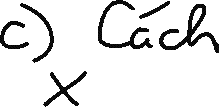 c) Cách
x